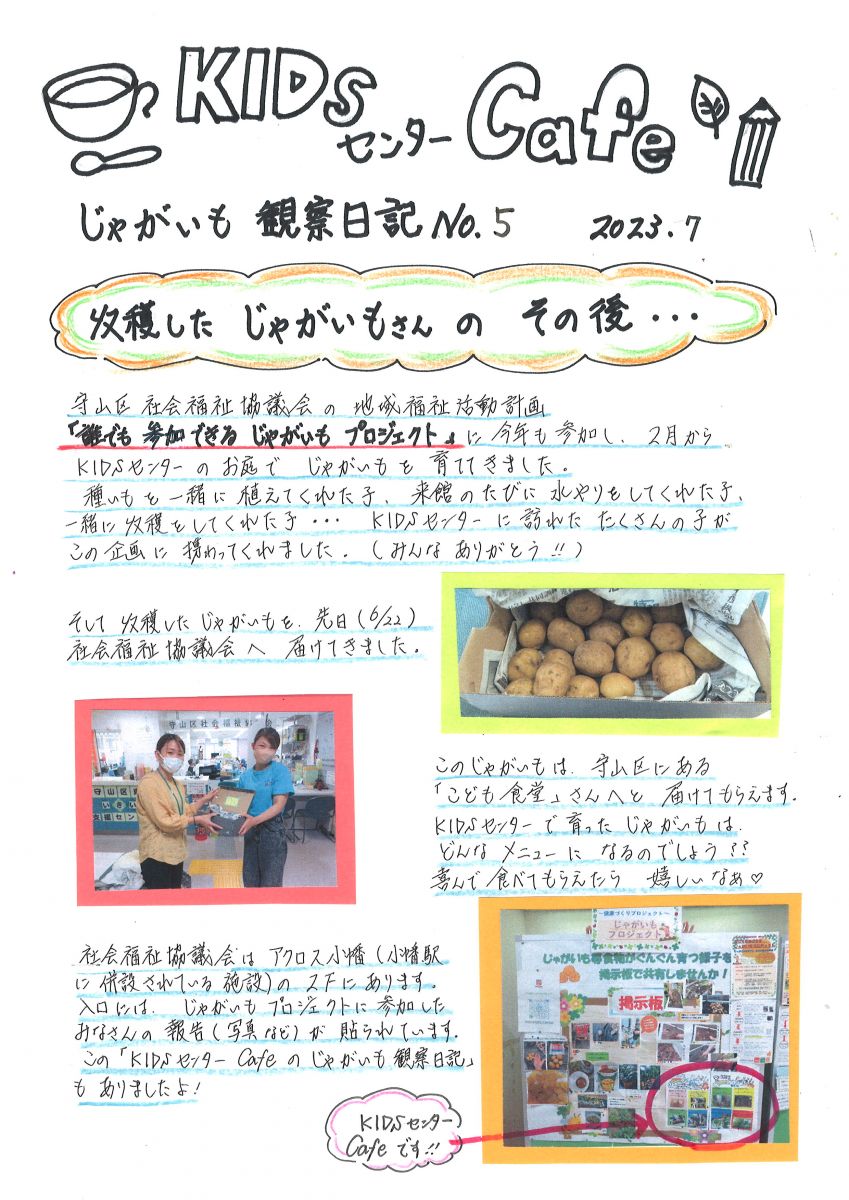 KIDs センター Cafe
じゃがいも 観察日記 No.5 2023.7
収穫した じゃがいもさん の その後・・・
守山区 社会福祉協議会の 地域福祉活動計画
「誰でも 参加できる じゃがいも プロジェクト」に 今年も 参加し、2月から
KIDSセンターの お庭で じゃがいもを 育ててきました。
種いもを 一緒に 植えてくれた子、来館のたびに 水やりをしてくれた子、
一緒に 収穫をしてくれた子・・・ KIDSセンターに 訪れた たくさんの子が
この企画に 携わってくれました。(みんな ありがとう!!)
そして 収穫した じゃがいもを、先日(6/22)
社会福祉協議会へ 届けてきました。
守山区社会福祉協議会
守山区
いきい
支援セン
このじゃがいもは、守山区にある
「こども食堂」さんへと 届けてもらえます。
KIDSセンターで 育った じゃがいもは、
どんな メニューに なるのでしょう??
喜んで 食べてもらえたら 嬉しいなぁ♡
社会福祉協議会は アクロス小幡(小幡駅
に 併設されている 施設)の 2Fにあります。
入口には、じゃがいも プロジェクトに 参加した
みなさんの 報告(写真など)が 貼られています。
この「KIDSセンター Cafe の じゃがいも 観察日記」
も ありましたよ!
~健康づくりプロジェクト~
じゃがいも
プロジェクト
じゃがいも等食物がぐんぐん育つ様子を
掲示板で共有しませんか!
掲示板
KIDSセンター
Cafe です!!